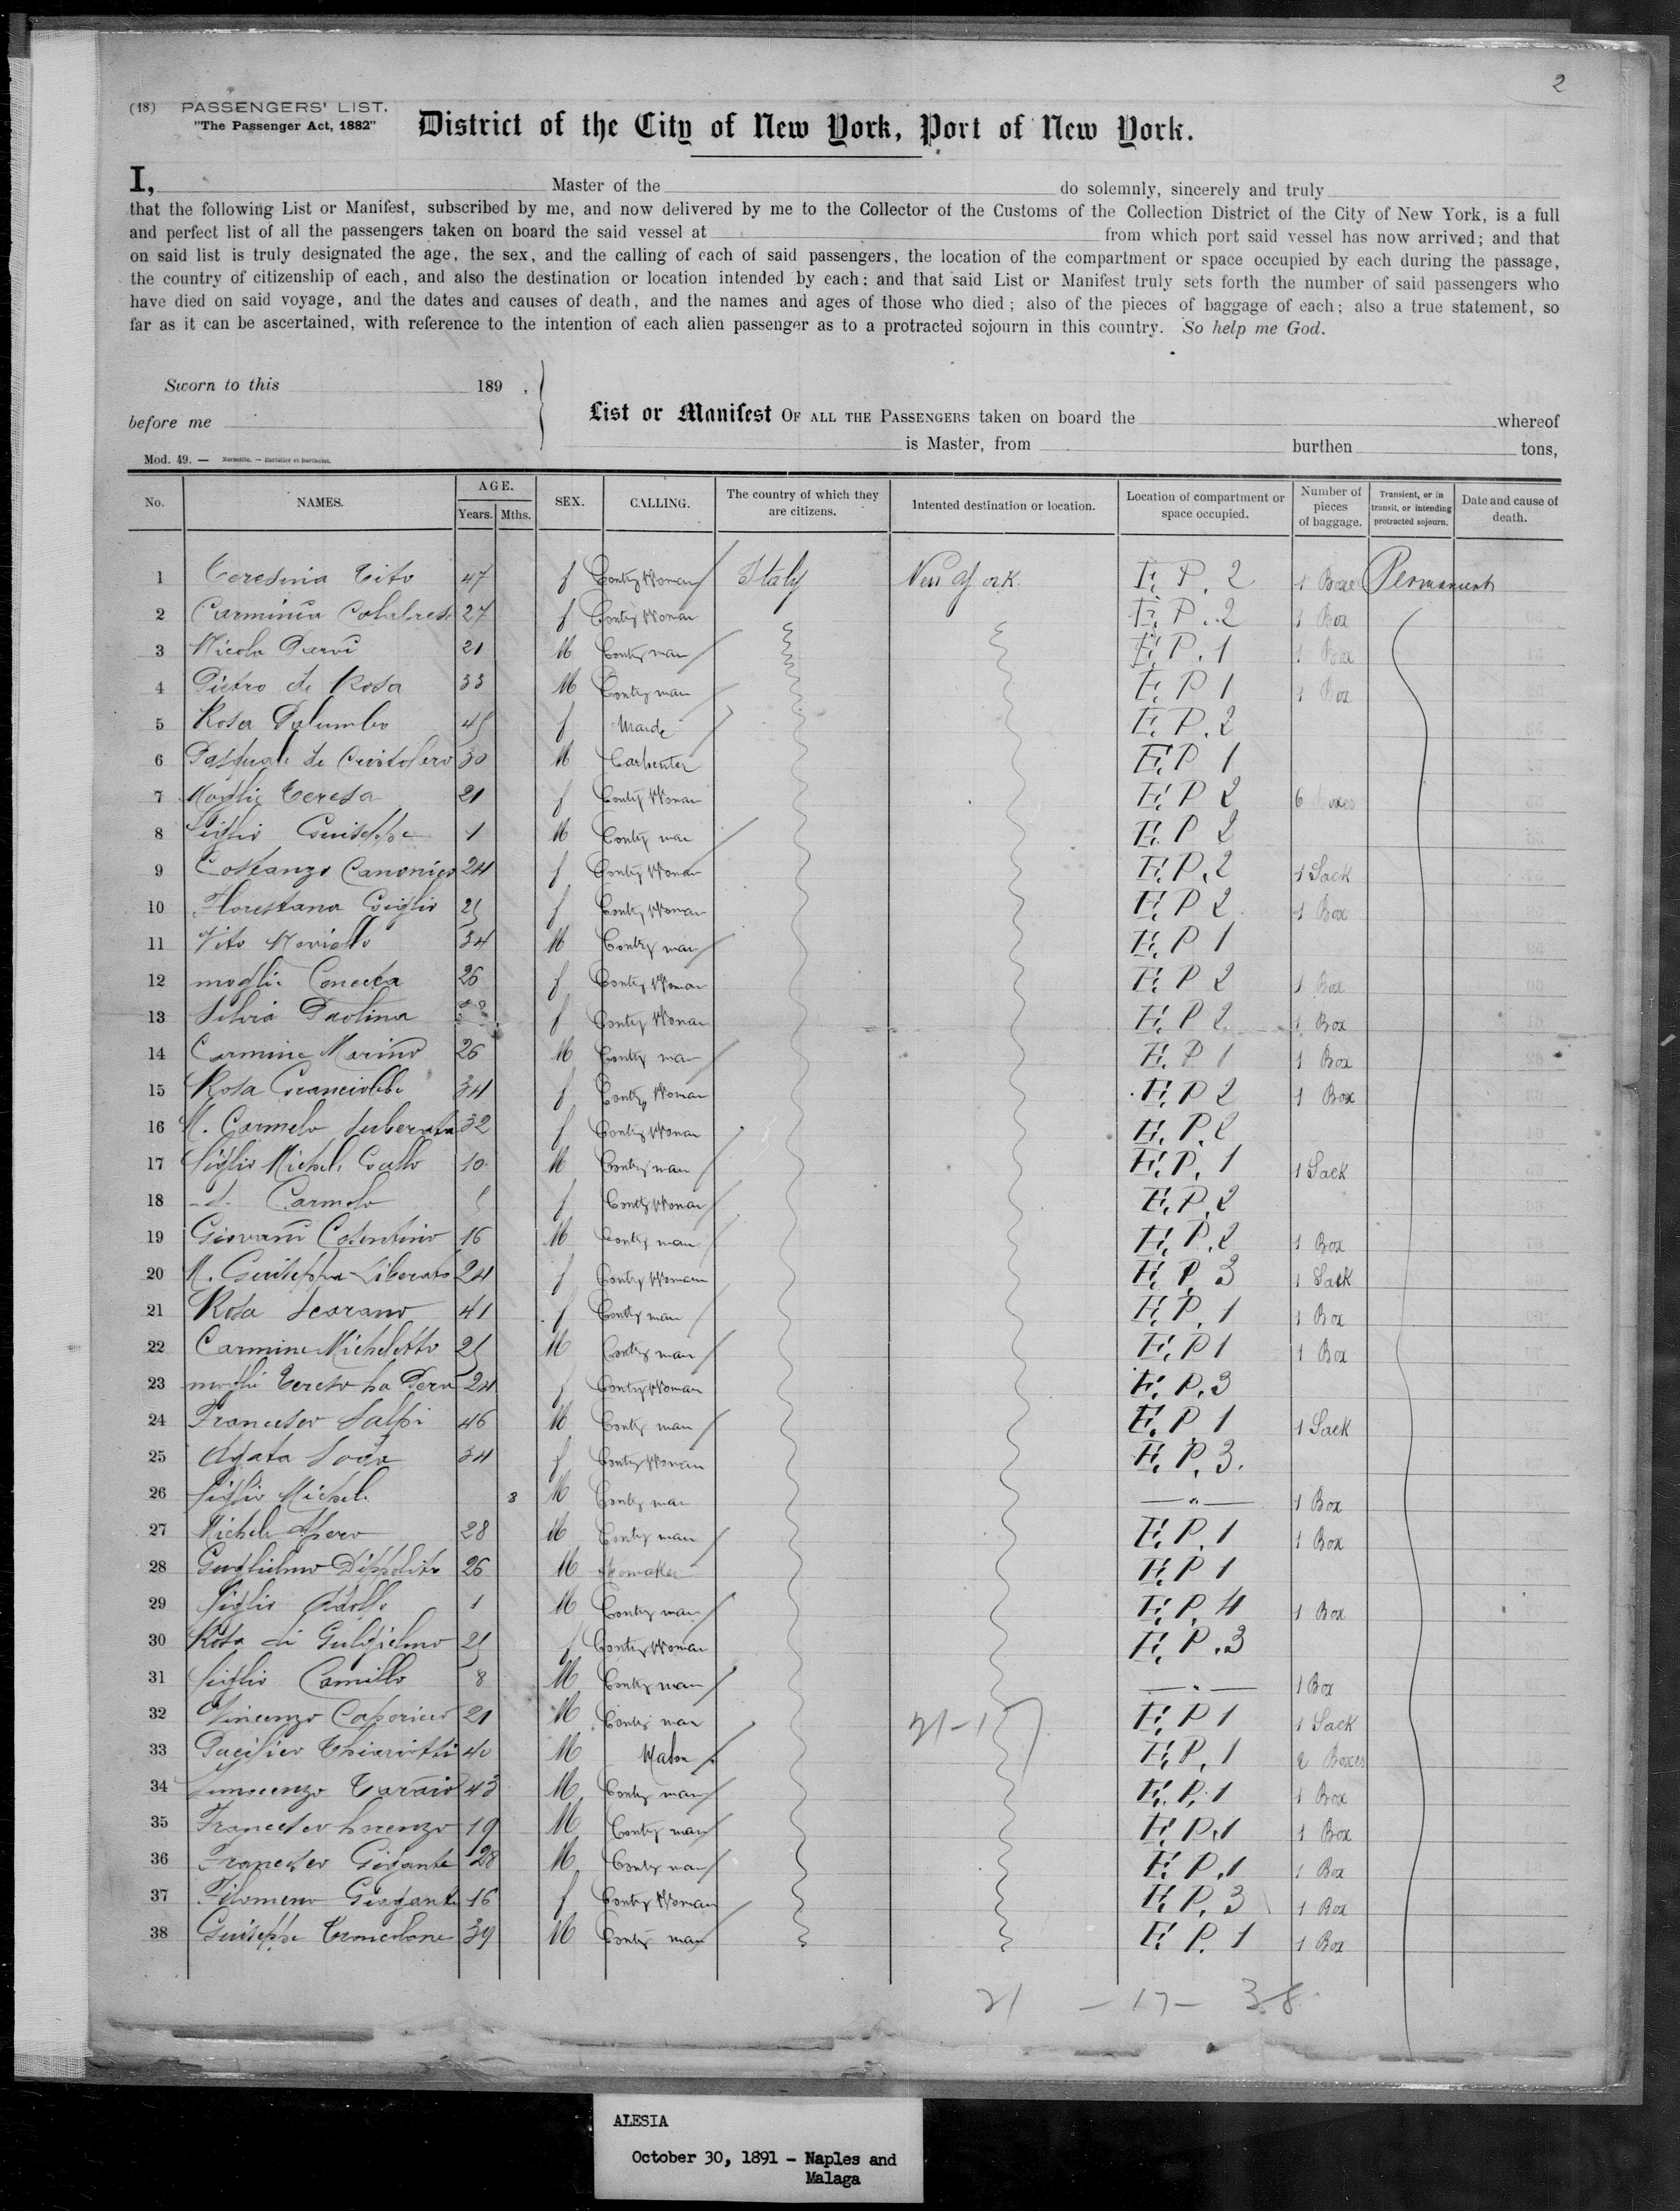 2
(18) PASSENGERS' LIST.
"The Passenger Act, 1882"
District of the City of New York, Port of New York.
I, Master of the do solemnly, sincerely and truly
that the following List or Manifest, subscribed by me, and now delivered by me to the Collector of the Customs of the Collection District of the City of New York, is a full
and perfect list of all the passengers taken on board the said vessel at from which port said vessel has now arrived; and that
on said list is truly designated the age, the sex, and the calling of each of said passengers, the location of the compartment or space occupied by each during the passage,
the country of citizenship of each, and also the destination or location intended by each; and that said List or Manifest truly sets forth the number of said passengers who
have died on said voyage, and the dates and causes of death, and the names and ages of those who died; also of the pieces of baggage of each; also a true statement, so
far as it can be ascertained, with reference to the intention of each alien passenger as to a protracted sojourn in this country. So help me God.
Sworn to this 189 .
before me
List or Manifest OF ALL THE PASSENGERS taken on board the whereof
is Master, from burthen tons,
Mod. 49. — Marseille. — Barlatier et Barthelet.
No. NAMES. AGE. Years. Mths. SEX. CALLING. The country of which they are citizens. Intented destination or location. Location of compartment or space occupied. Number of pieces of baggage. Transient, or in transit, or intending protracted sojourn. Date and cause of death.
1 Teresina Tito 47 f Contry Woman Italy New York E. P. 2 1 Box Permanent
2 Carminia 27 f Contry Woman E. P. 2 1 Box
3 Nicola 21 M Contry man E. P. 1 1 Box
4 Pietro de Rosa 33 M Contry man E. P 1 1 Box
5 Rosa Palumbo 45 f Maide E. P. 2
6 Pasquale de Cristofero 30 M Carpenter E. P 1
7 Moglie Teresa 21 f Contry Woman E. P 2 6 Boxes
8 figlio Guiseppe 1 M Contry man E. P 2
9 Costanzo Canonico 24 f Contry Woman E. P. 2 1 Sack
10 Florestana Giglio 25 f Contry Woman E. P 2 1 Box
11 Vito 34 M Contry man E. P 1
12 moglie Concetta 26 f Contry Woman E. P 2 1 Box
13 Silvia Paolina f Contry Woman E. P 2 1 Box
14 Carmine Marino 26 M Contry man E. P 1 1 Box
15 Rosa 34 f Contry Woman E. P 2 1 Box
16 M. Carmela 32 f Contry Woman E. P. 2
17 figlio Michele Gallo 10 M Contry man E. P. 1 1 Sack
18 -d- Carmela 5 f Contry Woman E. P. 2
19 Giovani Cosentino 16 M Contry man E. P. 2 1 Box
20 M. Guiseppa Liberato 24 f Contry Woman E. P. 3 1 Sack
21 Rosa Scarano 41 f Contry man E. P. 1 1 Box
22 Carmine Micheletto 25 M Contry man E. P 1 1 Box
23 moglie 24 f Contry Woman E. P. 3
24 Francesco Salpi 46 M Contry man E. P 1 1 Sack
25 Agata 34 f Contry Woman E. P. 3.
26 figlio Michele 8 M Contry man — " — 1 Box
27 Michele 28 M Contry man E. P. 1 1 Box
28 Guglielmo Dippolito 26 M Shomaker E. P 1
29 figlio Adolfo 1 M Contry man E. P. 4 1 Box
30 Rosa di Gulgielmo 25 f Contry Woman E. P. 3
31 figlio Camillo 8 M Contry man — " — 1 Box
32 Vincenzo 21 M Contry man 21-17 E. P 1 1 Sack
33 Pacifico 40 M Mason E. P. 1 2 Boxes
34 Innocenzo 43 M Contry man E. P. 1 1 Box
35 Francesco Lorenzo 19 M Contry man E. P. 1 1 Box
36 Francesco Gigante 28 M Contry man E. P. 1 1 Box
37 Filomena Giogante 16 f Contry Woman E. P. 3 1 Box
38 Guiseppe Troncelone 39 M Contry man E. P. 1 1 Box
21 - 17 - 38
ALESIA
October 30, 1891 - Naples and
Malaga